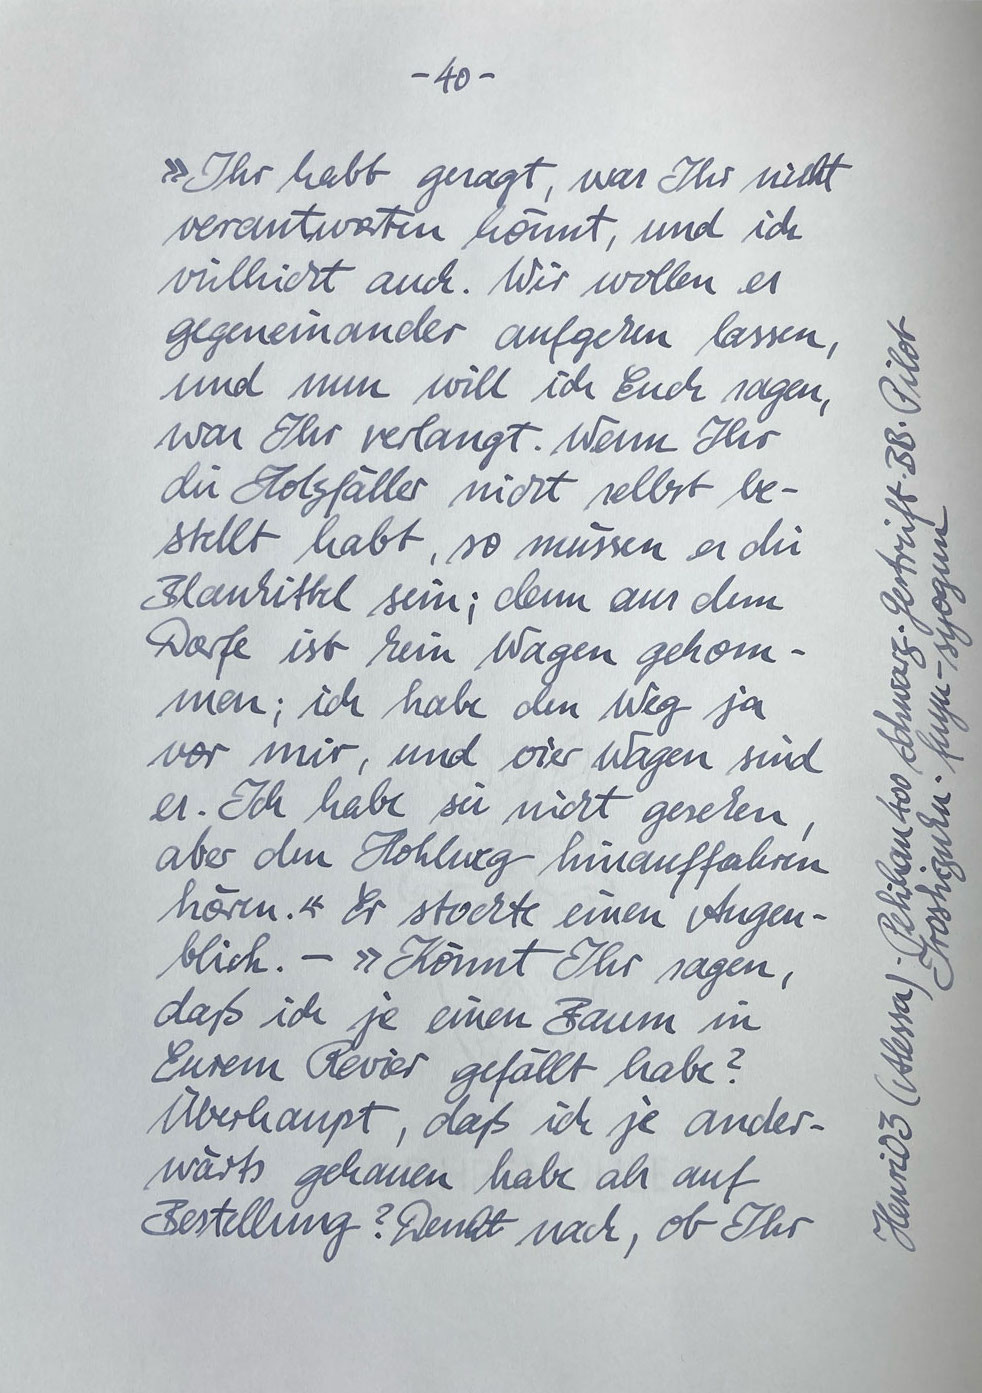 -40-
»Ihr habt gesagt, was Ihr nicht
verantworten könnt, und ich
vielleicht auch. Wir wollen es
gegeneinander aufgehen lassen,
und nun will ich Euch sagen,
was Ihr verlangt. Wenn Ihr
die Holzfäller nicht selbst be-
stellt habt, so müssen es die
Blaukittel sein; denn aus dem
Dorfe ist kein Wagen gekom-
men; ich habe den Weg ja
vor mir, und vier Wagen sind
es. Ich habe sie nicht gesehen,
aber den Hohlweg hinauffahren
hören.« Er stockte einen Augen-
blick. — »Könnt Ihr sagen,
daß ich je einen Baum in
Eurem Revier gefällt habe?
Überhaupt, daß ich je ander-
wärts gehauen habe als auf
Bestellung? Denkt nach, ob Ihr
HenriD3 (Alessa) · Pelikan 400 Schwarz · Gestreift · BB · Pilot
Iroshizuku · fuyu-syogun